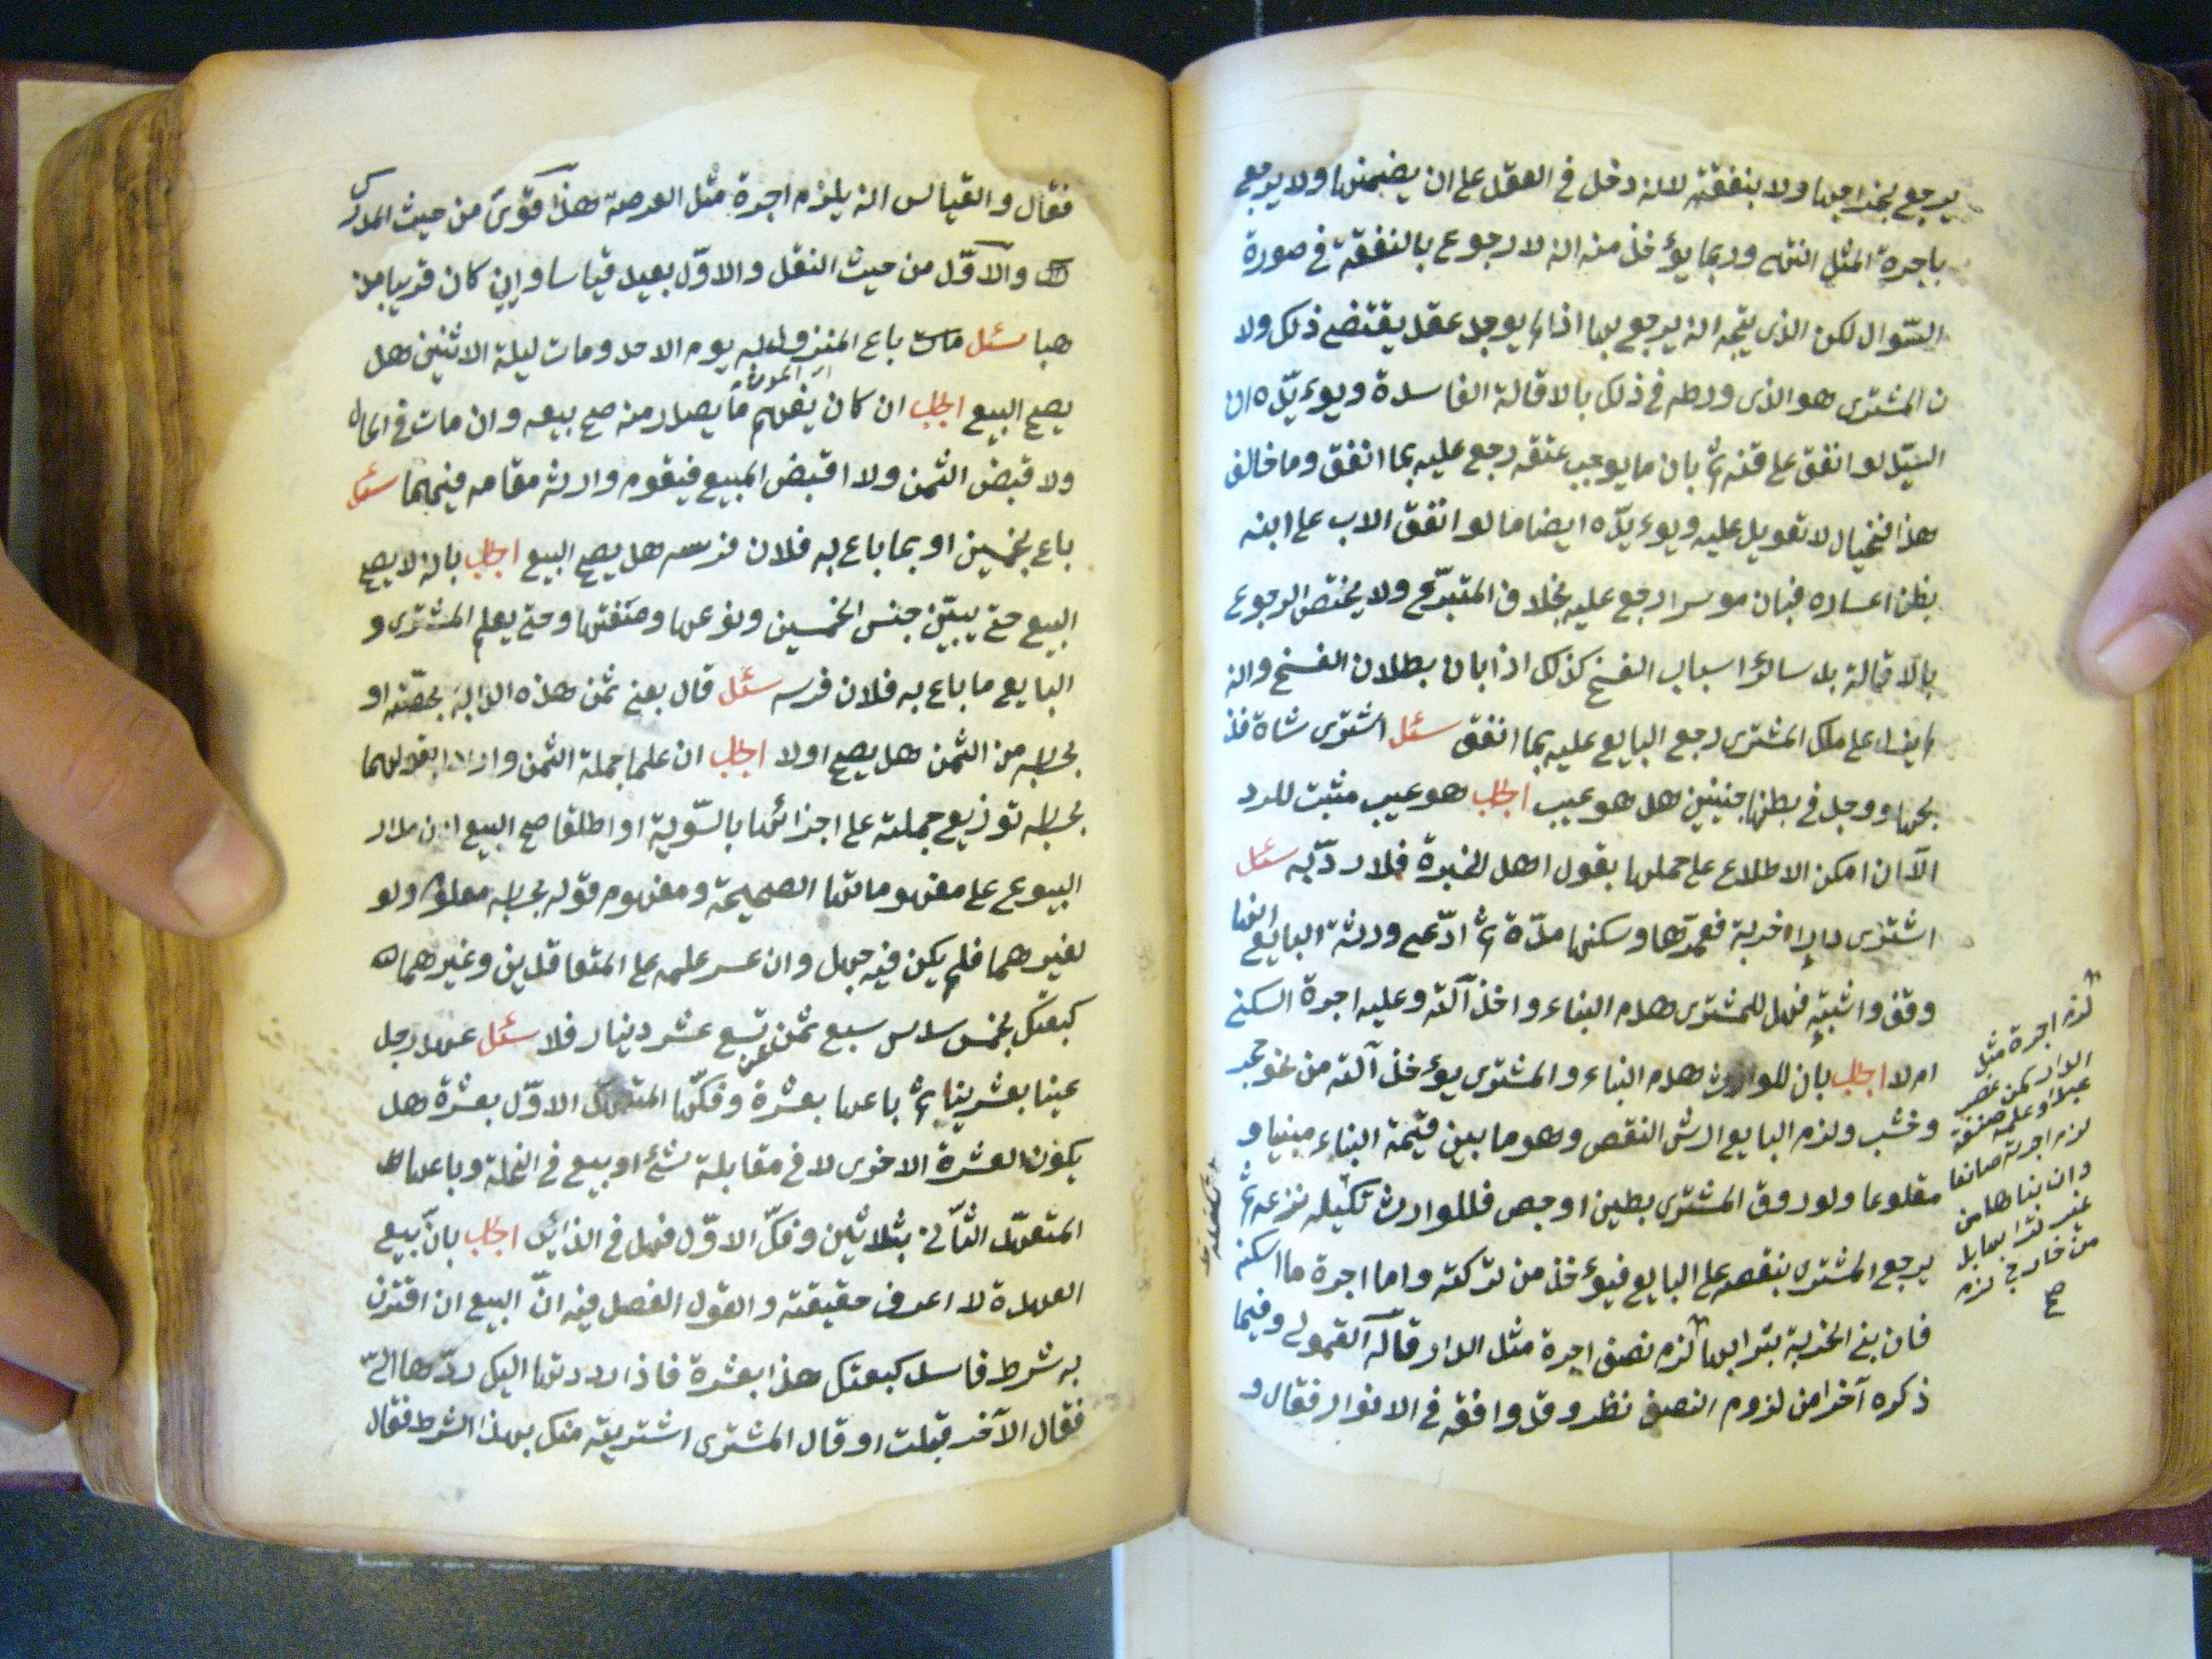 يرجع بخراجها ولا بنفقته لانه دخل في العقد على ان يضمنها ولا يرجع
باجرة المثل انتهى وربما يؤخذ منه انه لا رجوع بالنفقة في صورة
السّوال لكن الذى يتجه انه يرجع بها اذا لم يوجد عقد يقتضى ذلك ولا
ن المشترى هو الذى ورطه في ذلك بالاقالة الفاسدة ويؤيّده ان
السيّد لو انفق على قنه ثم بان ما يوجب عتقه رجع عليه بما انفق وما خالف
هذا فخيال لا تعويل عليه ويؤيدّه ايضا ما لو انفق الاب على ابنه
بظن اعساره فبان موسرا رجع عليه بخلاف المتبرّع ولا يختص الرجوع
بالاقالة بل سائر اسباب الفسخ كذلك اذا بان بطلان الفسخ وانه
على ملك المشترى رجع البايع عليه بما انفق سئل اشترى شاة فذ
بحها ووجد في بطنها جنينين هل هو عيب اجاب هو عيب مثبت للرد
الآان امكن الاطلاع على حملها بقول اهل الخبرة فلا ردّ به سئل
اشترى دارا خربة فعمرّها وسكنها مدّة ثم ادّعى ورثة البايع انها
وقف واثبته فهل للمشترى هدم البناء واخذ آلته وعليه اجرة السكنى
ام لا اجاب بان للوارث هدم البناء والمشترى يؤخذ آلته من نحو حجر
وخشب ولزم البايع ارش النقص وهو ما بين قيمة البناء مبنيا و
مقلوعا ولو زوق المشترى بطين او جص فللوارث تكليفه نزعه ثم
يرجع المشترى بنقصه على البايع فيؤخذ من تركته واما اجرة ما سكنه
فان بنى الخربة بترابها لزم نصف اجرة مثل الدار قاله القمولى وفيما
ذكره آخرا من لزوم النصف نظر وقد وافقه في الانوار فقال و
لزم اجرة مثل
الدار كمن غصب
لزم اجرته صانعا
وان بناها من
غير ترابها بل
من خارج لزم
صح
فقال والقياس انه يلزم اجرة مثل العرصة هذا قوىّ من حيث المدرك
والاوّل من حيث النقل والاوّل بعيد قياسا وان كان قريبا مذ
هبا سئل باع المنزول به يوم الاحد ومات ليلة الاثنين هل
يصح البيع اجاب ان كان يفهم ما يصدر منه صح بيعه وان مات في الحال
ولا قبض الثمن ولا اقبض المبيع فيقوم وارثه مقامه فيهما سئل
باع بخمسين او بما باع به فلان فرسه هل يصح البيع اجاب بانه لا يصح
البيع حتى يبيّن جنس الخمسين ونوعها وصفتها وحتى يعلم المشترى و
البايع ما باع به فلان فرسه سئل قال بعنى ثمن هذه الدابة بحصّته او
بحسابه من الثمن هل يصح او لا اجاب ان علما جملة الثمن وارادا بقولهما
بحسابه توزيع جملته على اجزائها بالسّوية او اطلقا صح البيع اذ مدار
البيوع على مفهوماتها الصحيحة ومفهوم قوله بحسابه معلوم ولو
لغيرهما فلم يكن فيه جهل وان عسر علمه على المتعاقدين وغيرهما
كبعتك بخمس سدس سبع ثمن تسع عشر دينار فلا سئل عهد رجل
عينا بعشرين ثم باعها بعشرة وفكّها المتعهد الاوّل بعشرة هل
يكون العشرة الاخرى لا في مقابلة شئ او بيع في الغلة وباعها
المتعهد الثّانى بثلاثين وفكّ الاوّل فهل في الزائد اجاب بانّ بيع
العهدة لا اعرف حقيقته والقول الفصل فيه انّ البيع ان اقترن
به شرط فاسد كبعتك هذا بعشرة فاذا رددتها اليك ردّها الىّ
فقال الآخر قبلت او قال المشترى اشتريته منك بهذا الشرط فقال